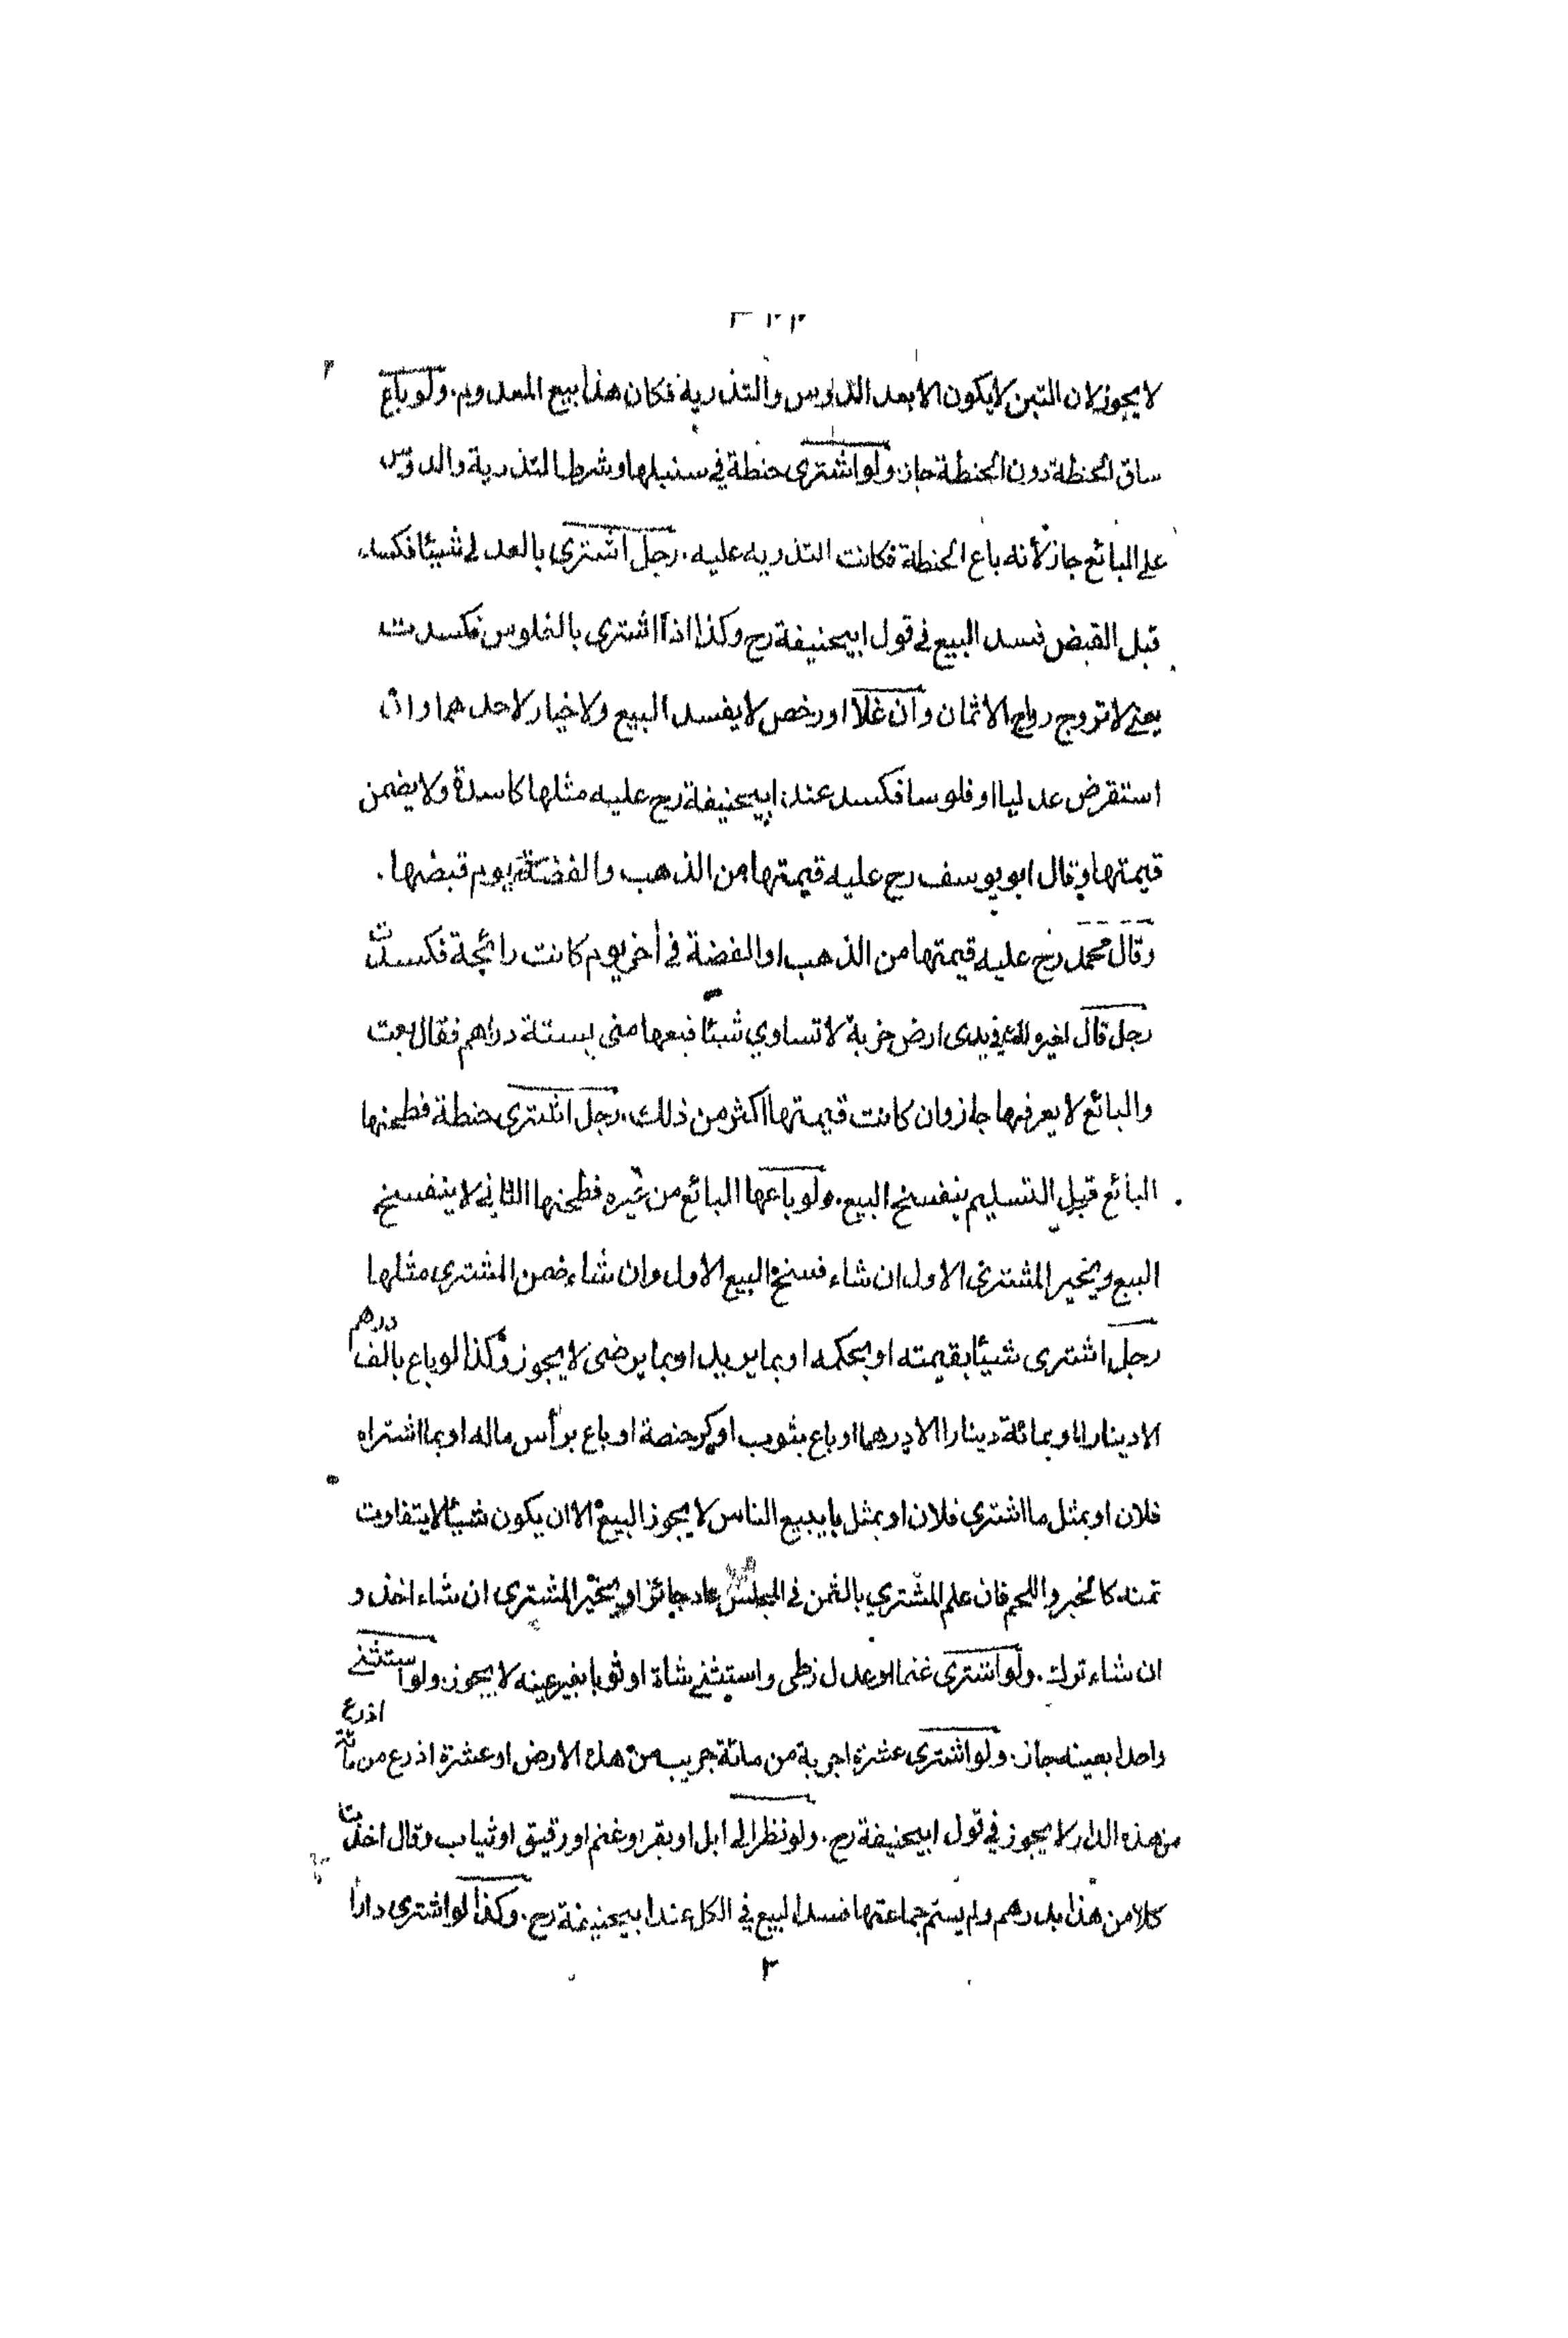 ٣٢٢
لا يجوز لان التبن لا يكون الا بعد الدوس والتذرية فكان هذا بيع المعدوم. ولو باع
ساق الحنطة دون الحنطة جاز. ولو اشترى حنطة في سنبلها وشرط التذرية والدوس
على البائع جاز لأنه باع الحنطة فكانت التذريه عليه. رجل اشترى بالعدلي شيئا فكسد
قبل القبض فسد البيع في قول ابيحنيفة رح وكذا اذا اشترى بالفلوس فكسدت
يعني لا تروج رواج الاثمان وان غلا او رخص لا يفسد البيع ولا خيار لاحدهما وان
استقرض عدليا او فلوسا فكسد عند ابيحنيفة رح عليه مثلها كاسدة ولا يضمن
قيمتها وقال ابو يوسف رح عليه قيمتها من الذهب والفضة يوم قبضها.
وقال محمد رح عليه قيمتها من الذهب او الفضة في أخر يوم كانت رائجة فكسدت
رجل قال لغيره لك في يدى ارض خربة لا تساوي شيئا فبعها منى بستة دراهم فقال بعت
والبائع لا يعرفها جاز وان كانت قيمتها اكثر من ذلك. رجل اشترى حنطة فطحنها
البائع قبل التسليم ينفسخ البيع. ولو باعها البائع من غيره فطحنها الثاني لا ينفسخ
البيع ويخير المشتري الاول ان شاء فسخ البيع الاول وان شاء ضمن المشتري مثلها
رجل اشترى شيئا بقيمته او بحكمه او بما يريد او بما يرضى لا يجوز وكذا لو باع بالف درهم
الا دينارا او بمائة دينارا الا درهما او باع بثوب او كر حنصة او باع برأس ماله او بما اشتراه
فلان او بمثل ما اشترى فلان او بمثل ما يبيع الناس لا يجوز البيع الا ان يكون شيئا لا يتفاوت
ثمنه كالخبز واللحم فان علم المشتري بالثمن في المجلس عاد جائزا ويخير المشتري ان شاء اخذ و
ان شاء ترك. ولو اشترى غنما او عدل زطى واستثنى شاة او ثوبا بغير عينه لا يجوز. ولو استثنى
واحدا بعينه جاز. ولو اشترى عشرة اجربة من مائة جريب من هذه الارض او عشرة اذرع من مائة اذرع
من هذه الدار لا يجوز في قول ابيحنيفة رح. ولو نظر الى ابل او بقر او غنم او رقيق او ثياب وقال اخذت
كلا من هذا بدرهم ولم يسم جماعتها فسد البيع في الكل عند ابيحنيفة رح. وكذا لو اشترى دارا
٢